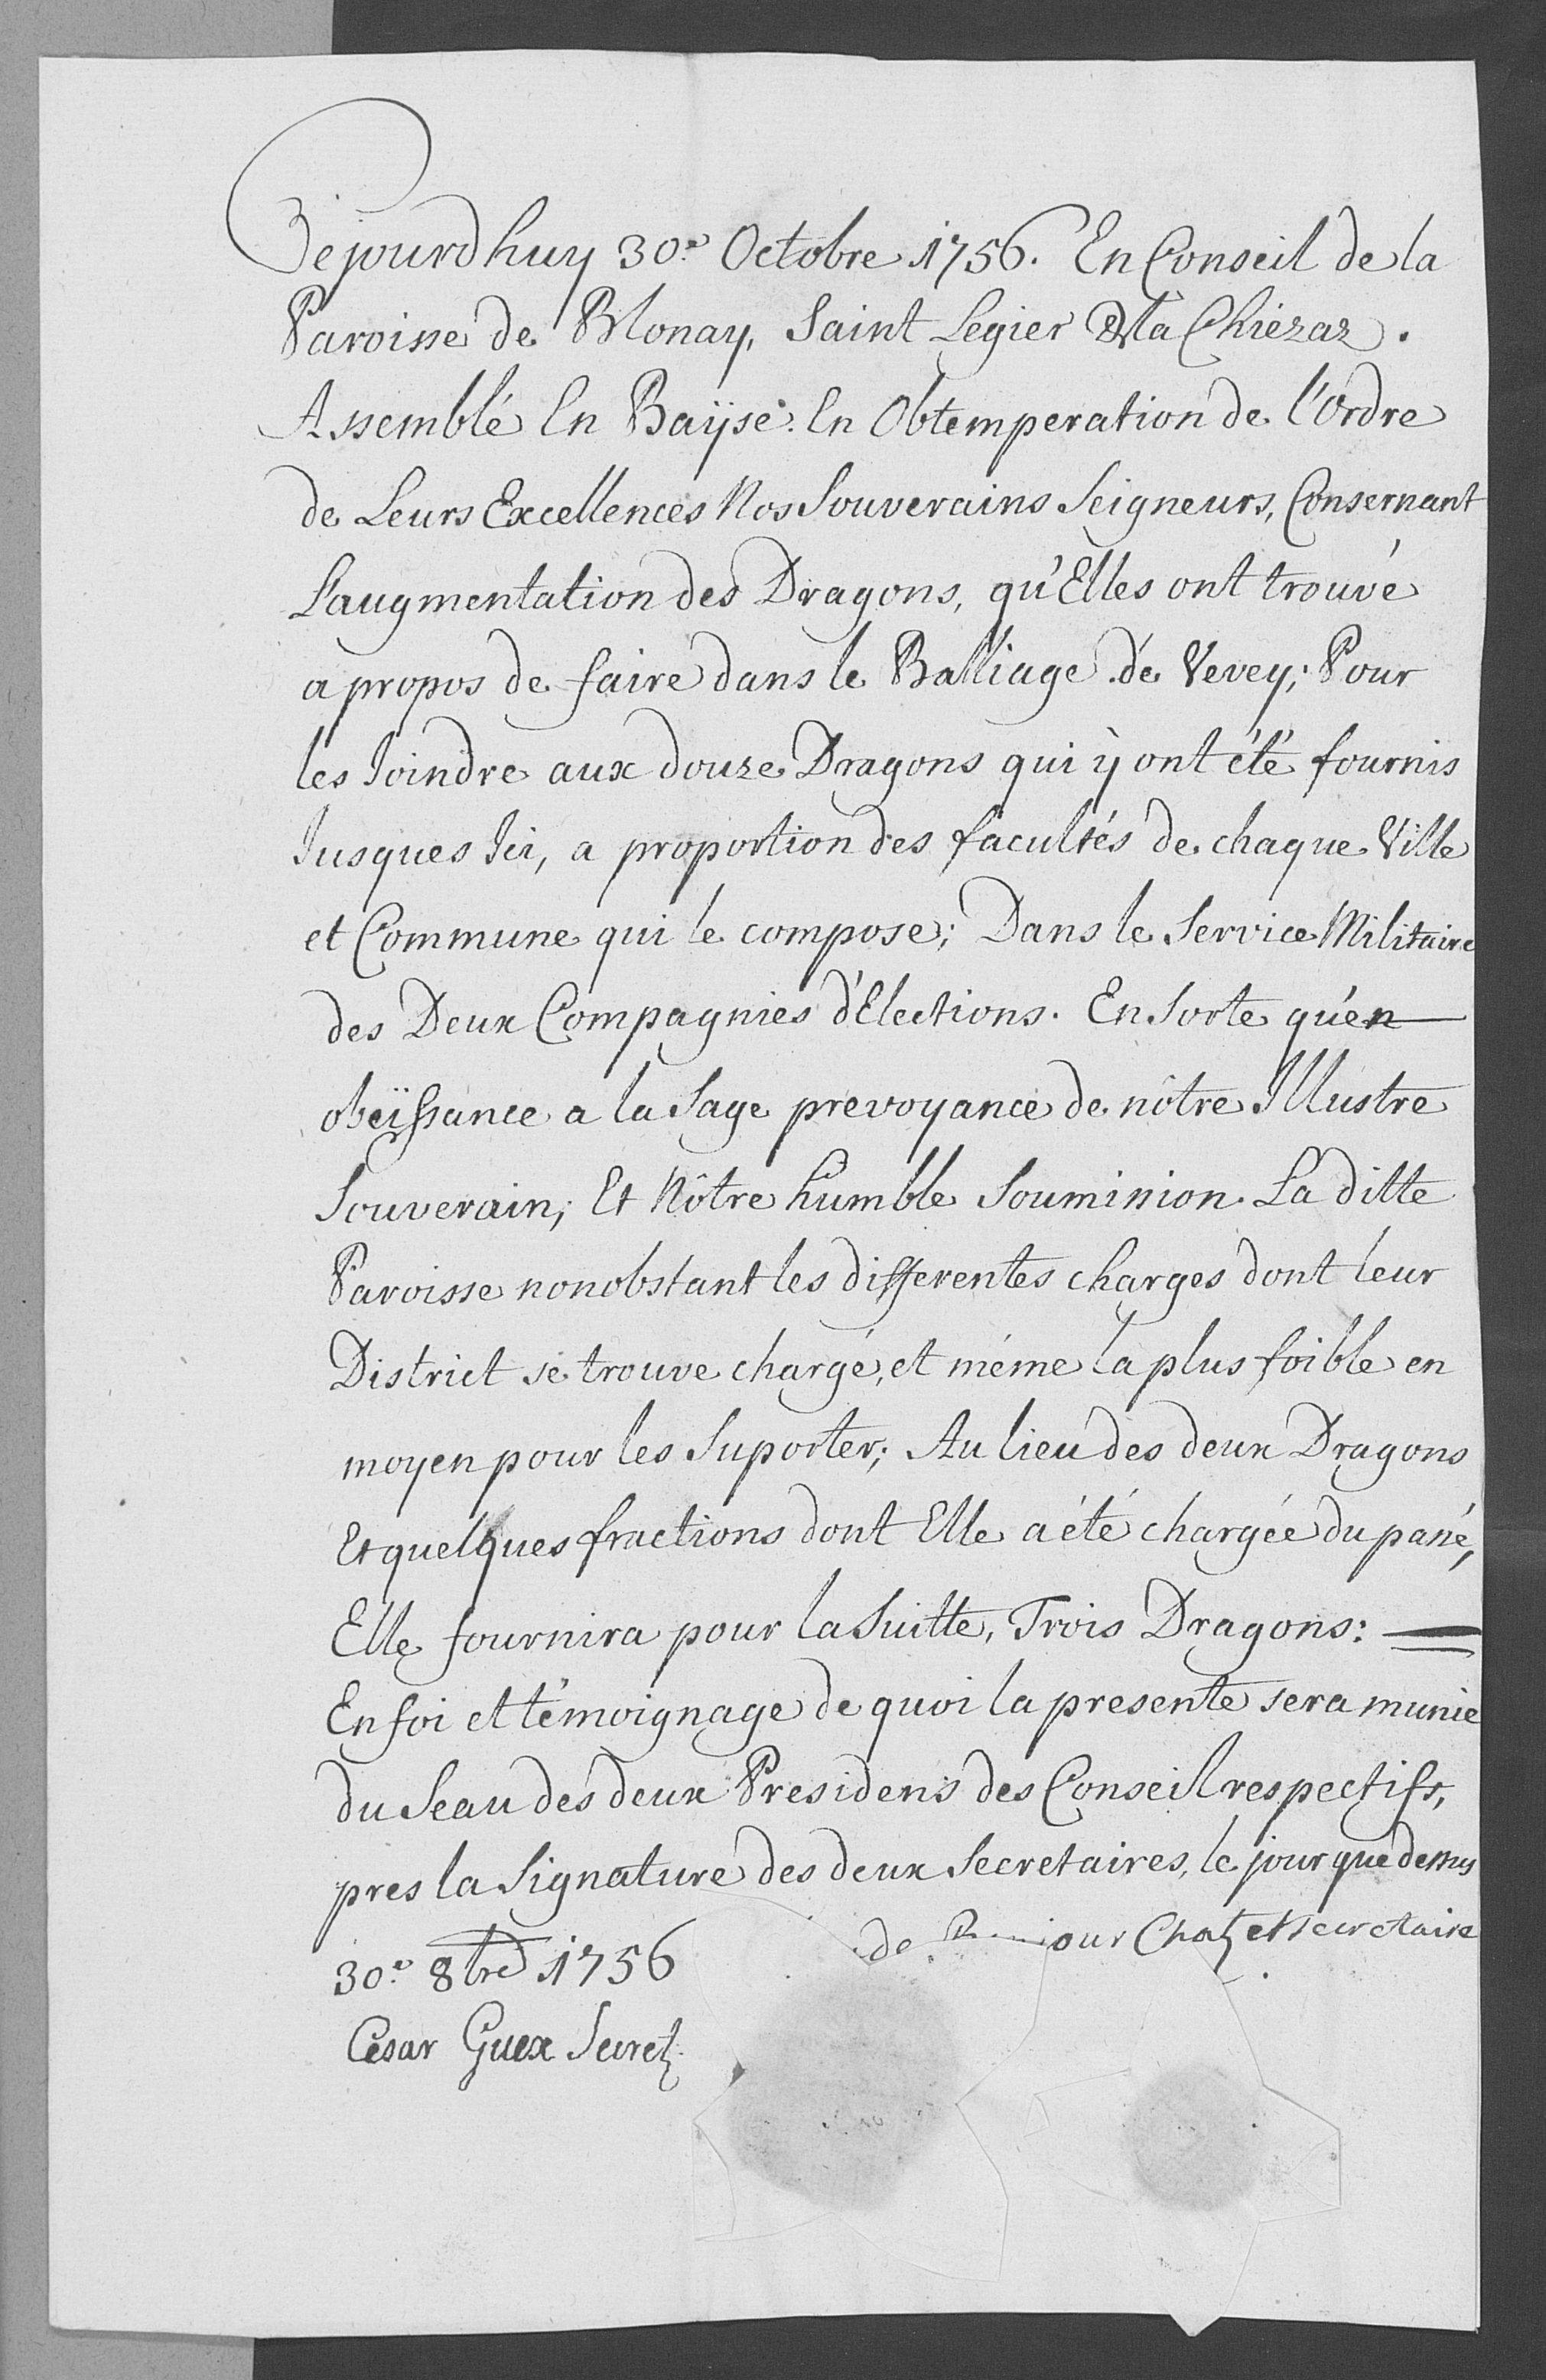 Cejourdhuy 30.e Octobre 1756. En Conseil de la
Paroisse de Blonay, Saint Legier & la Chiezaz.
Assemblé En Baÿse. En Obtemperation de l'Ordre
de Leurs Excellences Nos Souverains Seigneurs, Consernant
L'augmentation des Dragons, qu'Elles ont trouvé
a propos de faire dans le Balliage de Vevey; Pour
les Joindre aux douze Dragons qui ÿ ont été fournis
Jusques Ici, a proportion des facultés de chaque Ville
et Commune qui le compose; Dans le Service Militaire
des Deux Compagnies d'Elections. En Sorte qu'en
obeïssance a la Sage prevoyance de nôtre Illustre
Souverain; Et Nôtre humble Soumission. La ditte
Paroisse nonobstant les differentes charges dont leur
District se trouve chargé, et méme la plus foible en
moyen pour les Suporter; Au lieu des deux Dragons
Et quelques fractions dont Elle a été chargée du passé,
Elle fournira pour la Suitte, Trois Dragons:
En foi et témoignage de quoi la presente sera munie
du Seau des deux Presidens des Conseil respectifs,
pres la Signature des deux Secretaires, le jour que dessus
30.e 8bre 1756
de Chat et secretaire
César Guex Secret